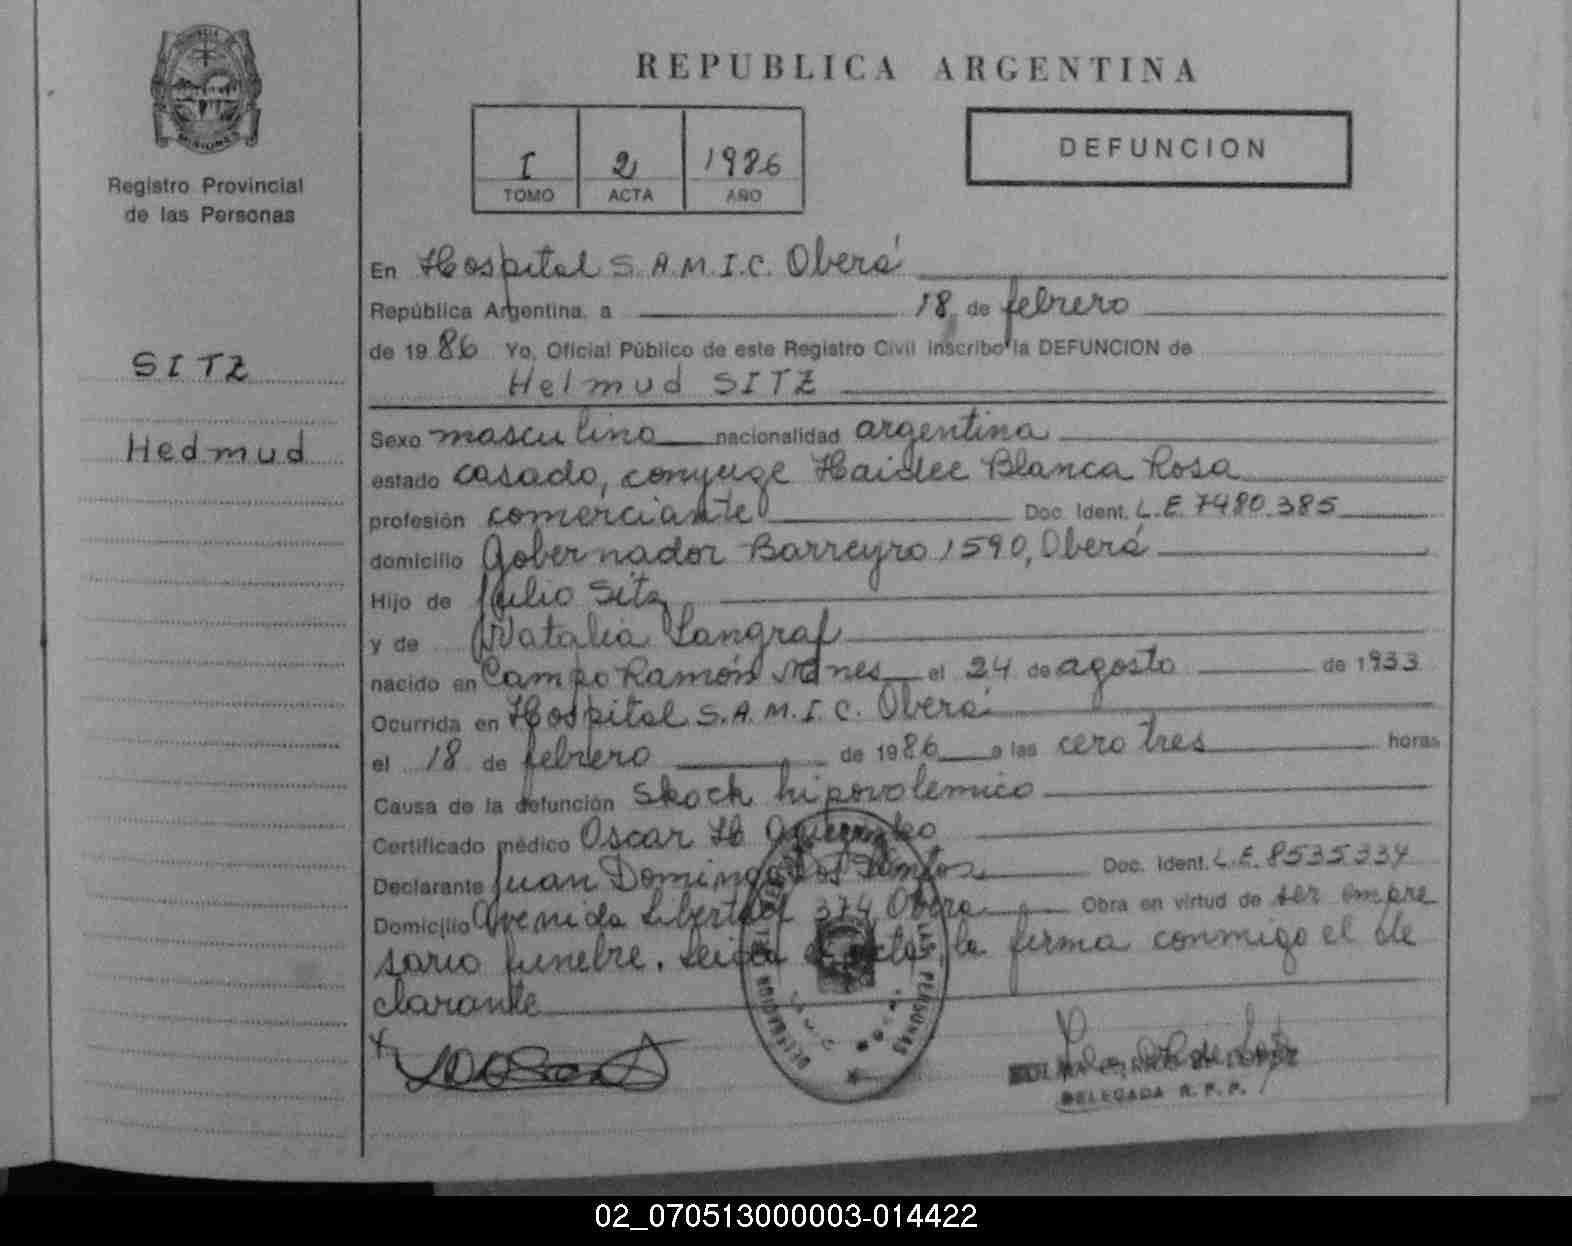 REPUBLICA ARGENTINA
PROVINCIA DE
MISIONES
Registro Provincial
de las Personas
I 2 1986
TOMO ACTA AÑO
DEFUNCION
SITZ
Hedmud
En Hospital S.A.M.I.C. Oberá
República Argentina, a 18 de febrero
de 1986 Yo, Oficial Público de este Registro Civil inscribo la DEFUNCION de
Helmud SITZ
Sexo masculino nacionalidad argentina
estado casado, conyuge Haidee Blanca Rosa
profesión comerciante Doc. Ident. L.E. 7480.385
domicilio Gobernador Barreyro 1590, Oberá
Hijo de Julio Sitz
y de Natalia Langraf
nacido en Campo Ramón Mnes el 24 de agosto de 1933
Ocurrida en Hospital S.A.M.I.C. Oberá
el 18 de febrero de 1986 a las cero tres horas
Causa de la defunción Skock hipovolemico
Certificado médico Oscar H
Declarante Juan Domingo Dos Santos Doc. Ident. L.E. 8535334
Domicilio Avenida Libertad 374 Oberá Obra en virtud de ser empre
sario funebre. Leida el acta, la firma conmigo el de
clarante
DELEGACION
LAS PERSONAS
DELEGADA R.P.P.
02_070513000003-014422